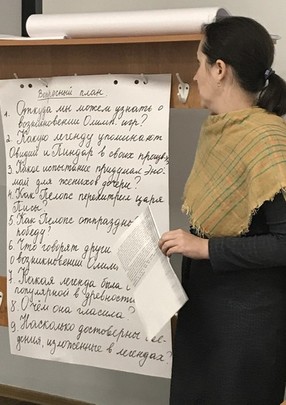 Вопросный план
1. Откуда мы можем узнать о
возникновении Олимп. игр?
2. Какую легенду упоминают
Овидий и Пиндар в своих
3. Какое испытание придумал Эно-
май для женихов дочери?
4. Как Пелопс перехитрил царя
Писы?
5. Как Пелопс отпраздно
победу?
6. Что говорят други
о возникновении Олимп
7. Какая легенда была
популярной в древности
8. О чём она гласила?
9. Насколько достоверны све-
дения, изложенные в легендах?